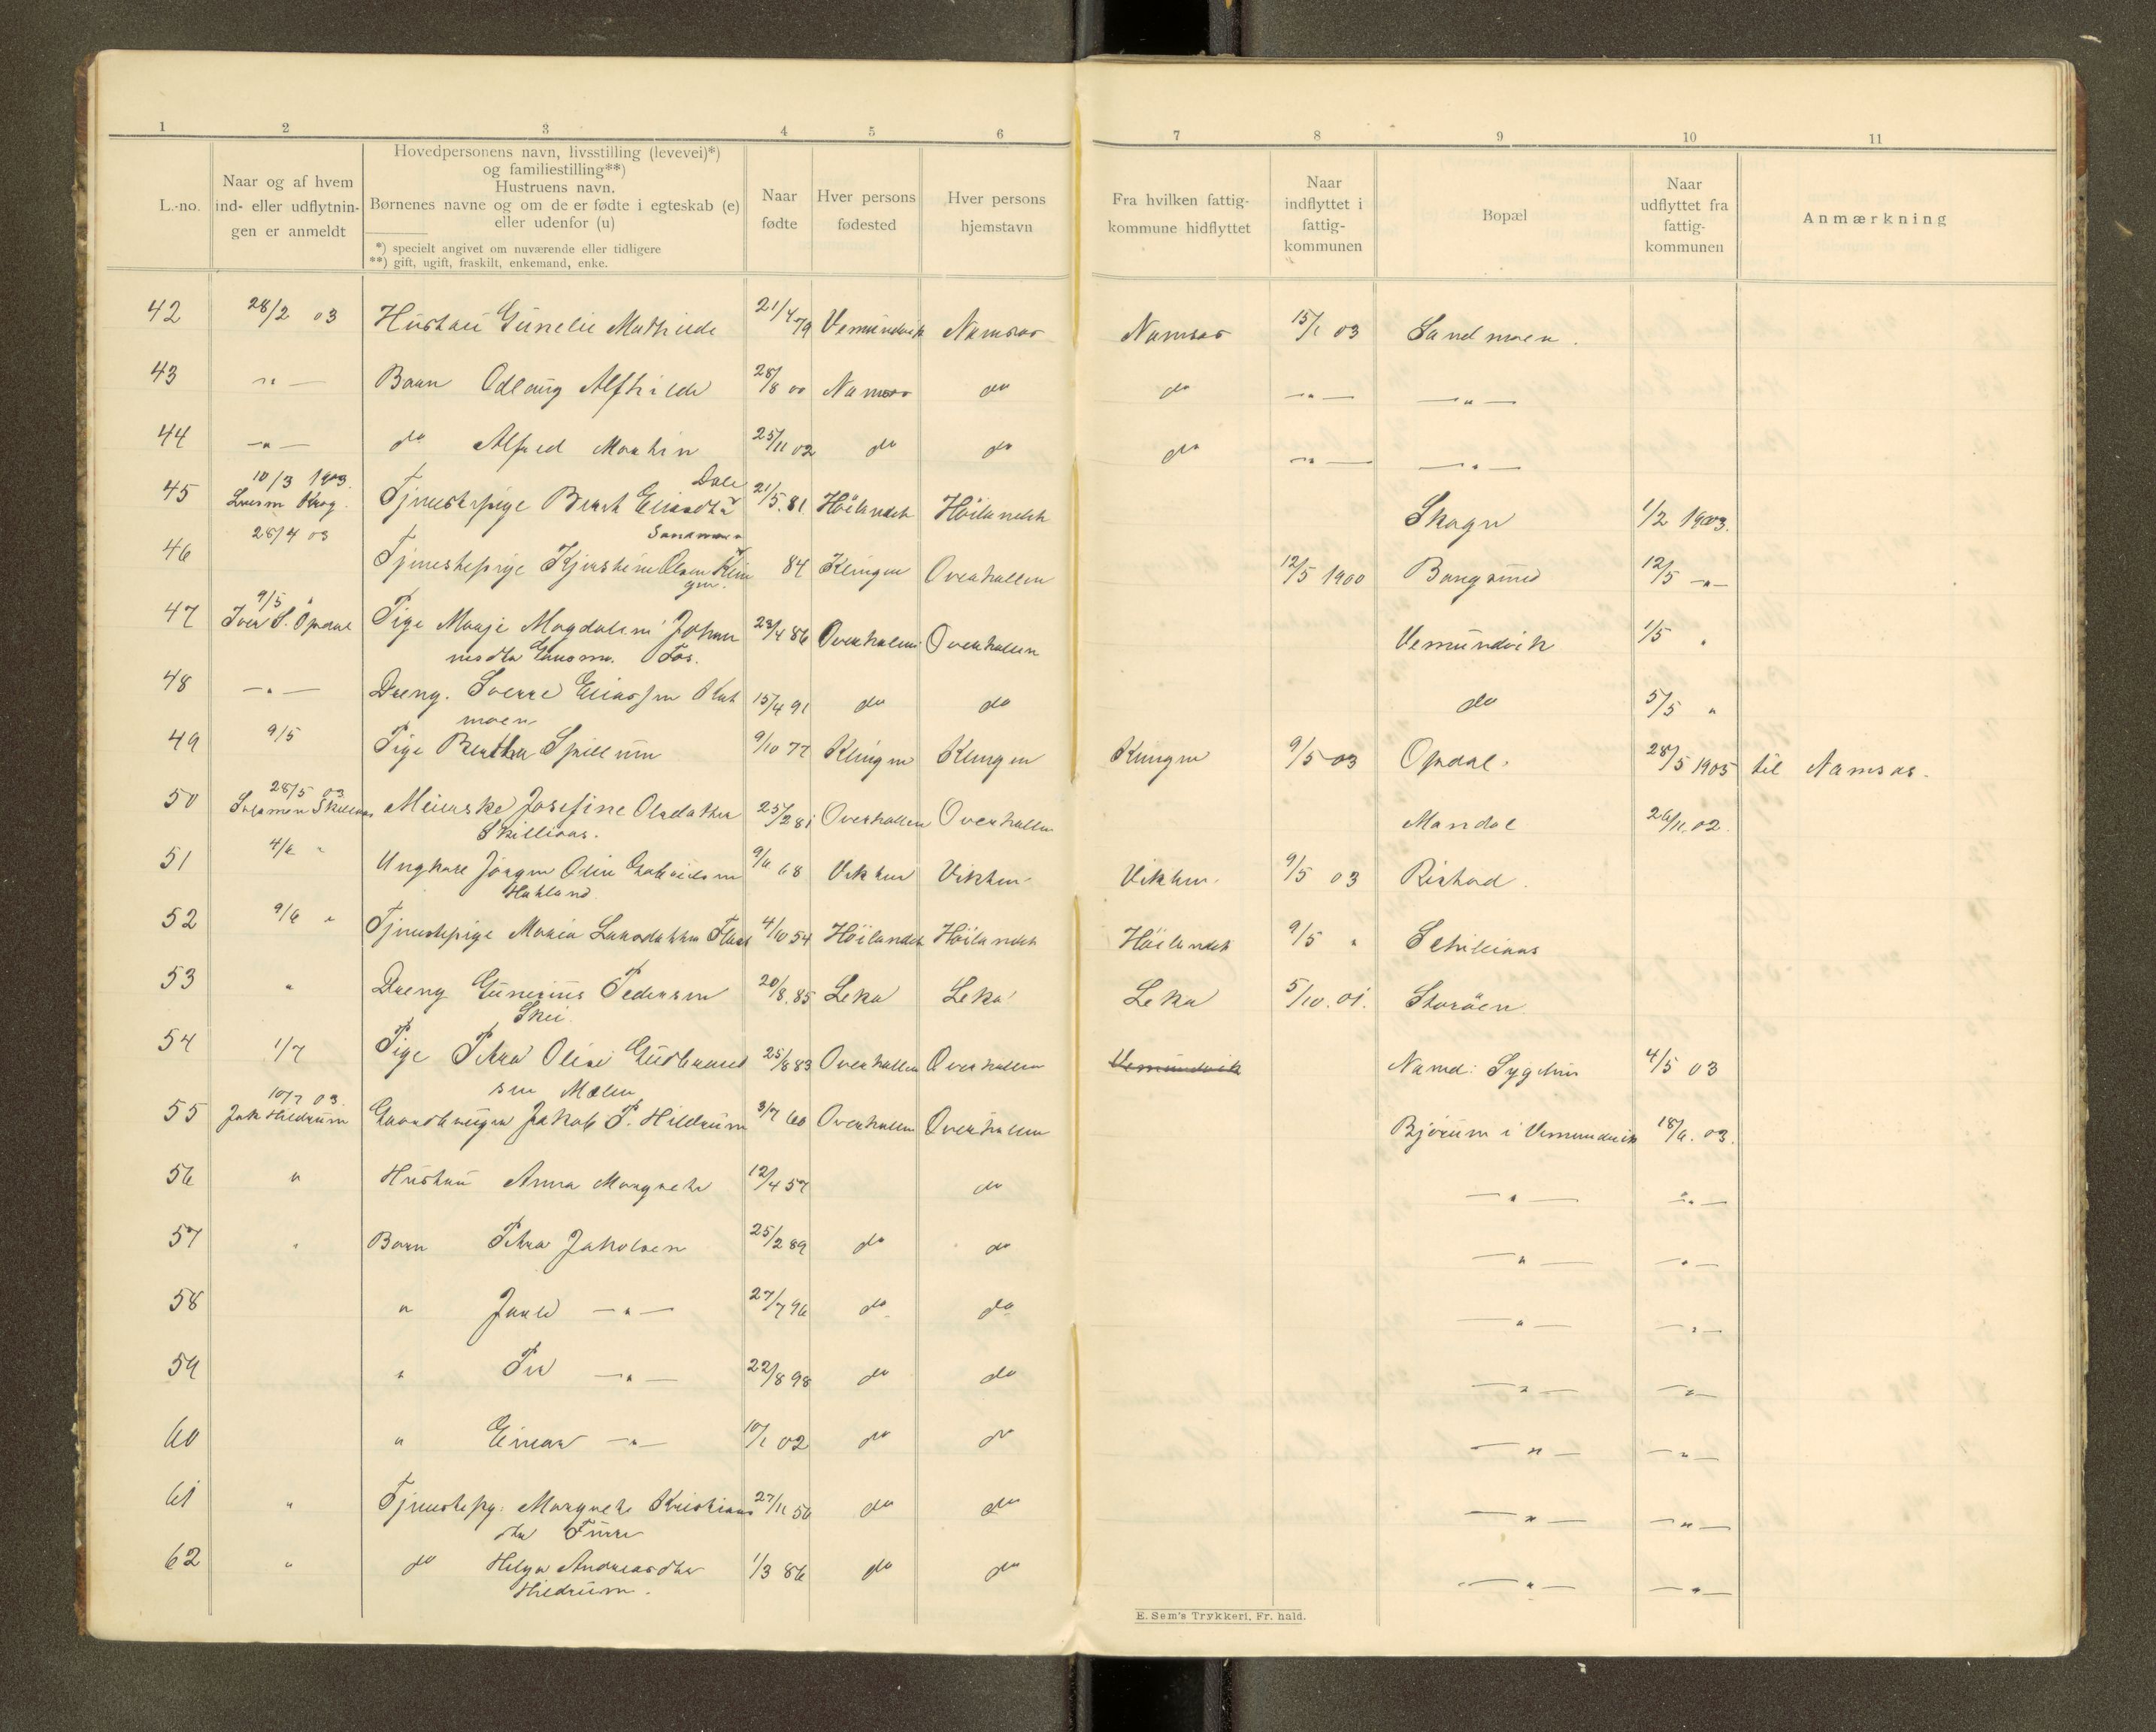 1 2 3 4 5 6 7 8 9 10 11
L.-no.
Naar og af hvem
ind- eller udflytnin-
gen er anmeldt
Hovedpersonens navn, livsstilling (levevei)*)
og familiestilling**)
Hustruens navn.
Børnenes navne og om de er fødte i egteskab (e)
eller udenfor (u)
*) specielt angivet om nuværende eller tidligere
**) gift, ugift, fraskilt, enkemand, enke.
Naar
fødte
Hver persons
fødested
Hver persons
hjemstavn
Fra hvilken fattig-
kommune hidflyttet
Naar
indflyttet i
fattig-
kommunen
Bopæl
Naar
udflyttet fra
fattig-
kommunen
Anmærkning
42 28/2 03 Hustru Gunelie Mathilde 21/4 79 Vemundvik Namsos Namsos 15/1 03 Sandmoen.
43 —"— Barn Odlaug Alfhilde 28/8 00 Namsos do do —"— —"—
44 —"— do Alfred Martin 25/11 02 do do do —"— —"—
10/3 1903. Dale
45 Lensm Krog. Tjenestepige Berit Eliasdtr 21/5.81. Höilandet Höilandet Skage 1/2 1903.
28/4 03 Sandmoen
46 Tjenestepige Kjerstine Olsen Klin 84 Klingen Overhallen 12/5 1900 Bangsund 12/5 —"—
gen.
9/5 "
47 Iver S. Opdal Pige Marje Magdaleni Johan 23/4 86 Overhallen Overhallen Vemundvik 1/5 "
nesdtr Fos.
48 —"— Dreng. Sverre Eliassen 15/4 91 do do do 5/5 "
moen
49 9/5 Pige Berthe Spillum 9/10 77 Klingen Klingen Klingen 9/5 03 Opdal. 28/5 1905 til Namsos.
28/5 03.
50 Salamon Skillaas Meierske Josefine Olsdatter 25/2 81 Overhallen Overhallen Mandal 26/11.02.
Skillaas.
51 4/6 " Ungkarl Jörgen Olin Gabrielsen 9/6 68 Vikten Vikten Vikten. 9/5 03
52 9/6 " Tjenestepige Maria Larsdatter 4/10 54 Höilandet Höilandet Höilandet 9/5 "
53 " Dreng Gunerius Pedersen 20/8.85 Leka Leka Leka 5/10.01. Storöen
Skei.
54 1/7 Pige Petra Oline Gudbrand 25/8 83 Overhallen Overhallen Vemundvik Namd: Sygehus 4/5 03
sen Mælen
10/7 03.
55 Jak Hildrum Gaardbruger Jakob P. Hildrum 3/7 60 Overhallen Overhallen Bjørum i Vemundvik 18/6.03.
56 " Hustru Anna Margrete 12/4 57 do —"— —"—
57 " Barn Petra Jakobsen 25/2 89 do do —"— —"—
58 " —"— 27/7 96 do do —"— —"—
59 " —"— 22/8 98 do do —"— —"—
60 " Einar —"— 10/1 02 do do —"— —"—
61 " Tjenestepg: Margrete Kristians 27/11 56 do do —"— —"—
dtr
62 " do Helga Andreasdtr 1/3 86 do do —"— —"—
Hildrum.
E. Sem's Trykkeri, Fr. hald.